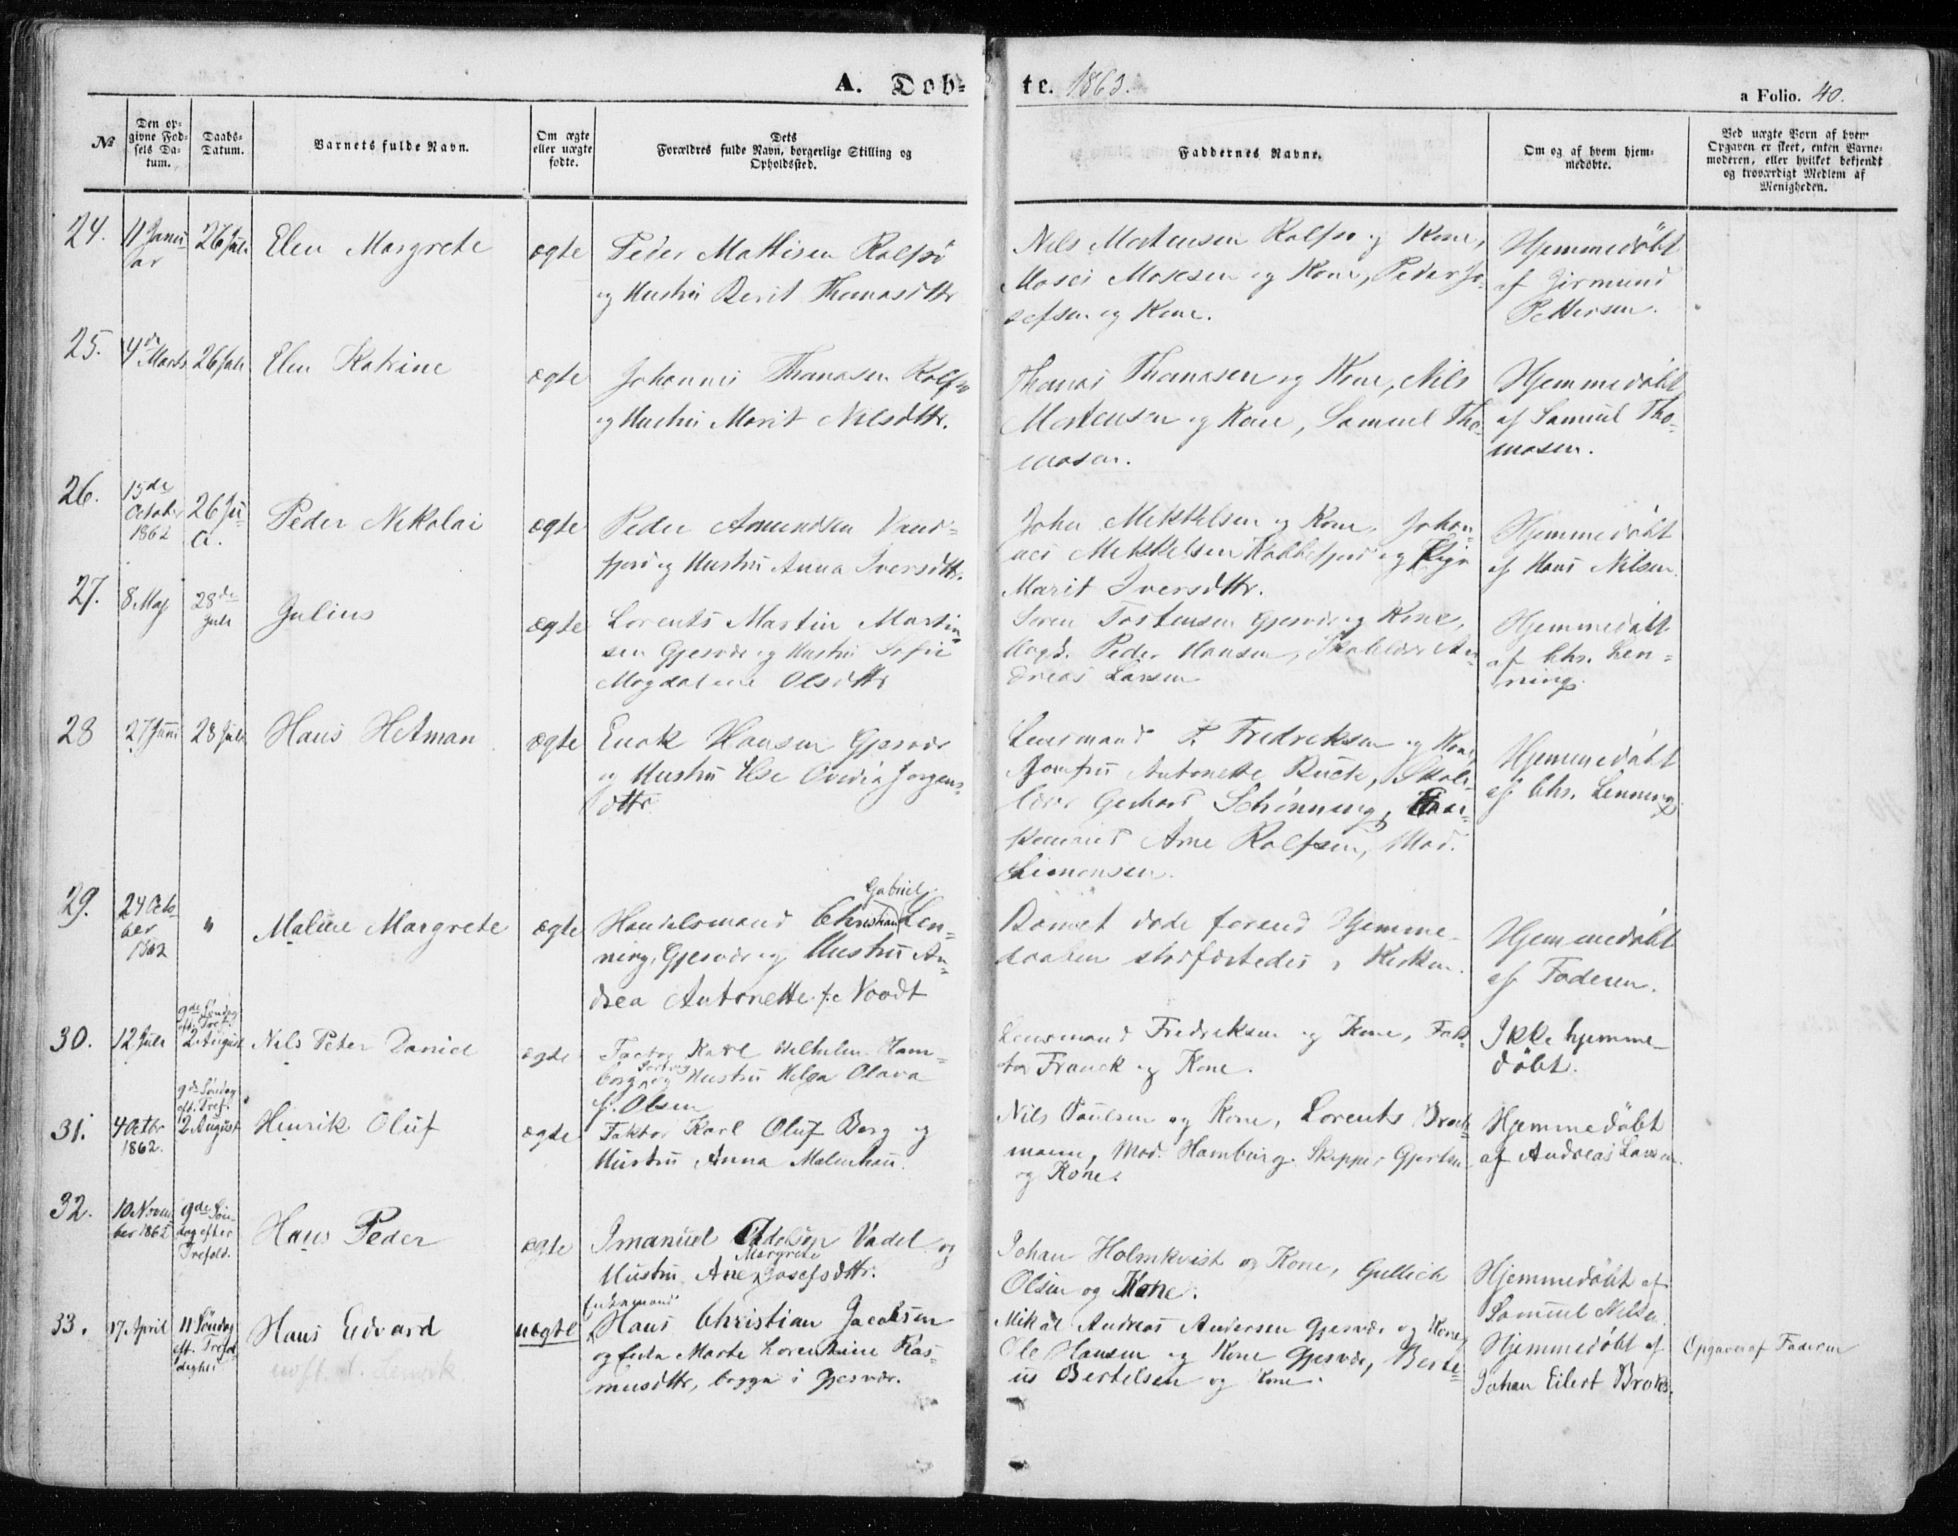 A. Døb-
te. 1863.
a Folio. 40.
№
Den op-
givne Fød-
sels Da-
tum.
Daabs-
Datum.
Barnets fulde Navn.
Om ægte
eller uægte
fødte.
Dets
Forældres fulde Navn, borgerlige Stilling og
Opholdssted.
Faddernes Navne.
Om og af hvem hjem-
medøbte.
Ved uægte Børn af hvem
Opgaven er skeet, enten Barne-
moderen, eller hvilket bekjendt
og troværdigt Medlem af
Menigheden.
24.
11 Janu
ar
26 Juli
Elen Margrete
ægte
Peder Mathisen Rolfsø
og Hustru Berit Thomasdttr
Nils Mortensen Rolfsø og Kone,
Moses Mosesen og Kone, Peder Jo-
sefsen og Kone.
Hjemmedøbt
af Zirmund
Pettersen.
25.
4de Marts
26 Juli
Elen Katrine
ægte
Johannes Thomasen Rolfsø
og Hustru Marit Nilsdttr.
Thomas Thomasen og Kone, Nils
Mortensen og Kone, Samuel Tho-
masen.
Hjemmedøbt
af Samuel Tho-
masen.
26.
15de
October
1862
26 Ju
li.
Peder Nikolai
ægte
Peder Amundsen Vand-
fjord og Hustru Anna Iversdttr.
John Mikkelsen og Kone, Johan-
nes Mikkelsen Kobbefjord og Pige
Marit Iversdttr.
Hjemmedøbt
af Hans Nilsen.
27.
8 Maj
28de
Juli
Julius
ægte
Lorents Martin Martin-
sen Gjesvær og Hustru Sofie
Magdalene Olsdttr
Søren Tostensen Gjesvær og Kone,
Peder Hansen, Skolelærer An-
dreas Larsen
Hjemmedøbt
af Chr. Len-
ning.
28
27 Juni
28 Juli
Hans Hetman
ægte
Enok Hansen Gjesvær
og Hustru Else Ovedia Jørgens-
dttr
Lensmand P. Fredriksen og Kone
Jomfru Antonette Buck, Skole-
lærer Gerhard Schønning,
Arne Rolfsen, Mad.
Simonsen.
Hjemmedøbt
af Chr. Lenning.
29.
24 Octo-
ber
1862
"
Maline Margrete
ægte
Gabriel
Handelsmand Christian Len-
ning, Gjesvær og Hustru An-
drea Antonette f: Noodt
Barnet døde forend Hjemme-
daaben stadfæstedes i Kirken.
Hjemmedøbt
af Faderen.
30.
12 Juli
9de Søndag
eft. Tref.
2 August
Nils Peter Daniel
ægte
Factor Karl Wilhelm Ham-
borg og Hustru Helga Olava
f: Olsen
Lensmand Fredriksen og Kone, Fak-
tor Franck og Kone.
Ikke hjemme-
døbt.
31.
4 Octbr
1862.
9de Søndag
eft. Tref.
2 August
Henrik Oluf
ægte
Faktor Karl Oluf Berg og
Hustru Anna Malmhau.
Nils Paulsen og Kone, Lorents Brock-
mann, Mad. Hamburg. Skipper Gjertsen
og Kone.
Hjemmedøbt
af Andreas Larsen.
32.
10 Novem
ber 1862
9de Søn-
dag efter
Trefold.
Hans Peder
ægte
Imanuel Adelsen Vadel og
Margrete
Hustru Ane Josefsdttr.
Johan Holmkvist og Kone, Gullich
Olsen og Kone.
Hjemmedøbt af
Samuel Nilsen.
33.
17 April
11 Søndag
eft. Trefol
dighed
Hans Edvard
uægte
Enkemand
Hans Christian Jacobsen
og Enke Marte Lorentsine Ras-
musdttr, begge i Gjesvær.
Mikal Andreas Andersen Gjesvær og Kone
Ole Hansen og Kone Gjesvær, Berte-
us Bertelsen og Kone.
Hjemmedøbt af
Johan Eilert Broks.
Opgave af Faderen